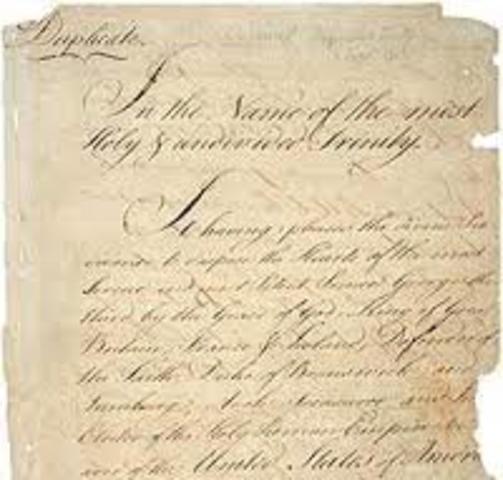 Duplicate.
In the Name of the most
Holy & undivided Trinity.
It having pleased the divine Pro
vidence to dispose the Hearts of the most
Serene and most Potent Prince George the
third, by the Grace of God, King of Great
Britain, France & Ireland, Defender of
the Faith, Duke of Brunswick and
Lunebourg, Arch Treasurer and
Elector of the Holy Roman Empire
and of the United States of Amer